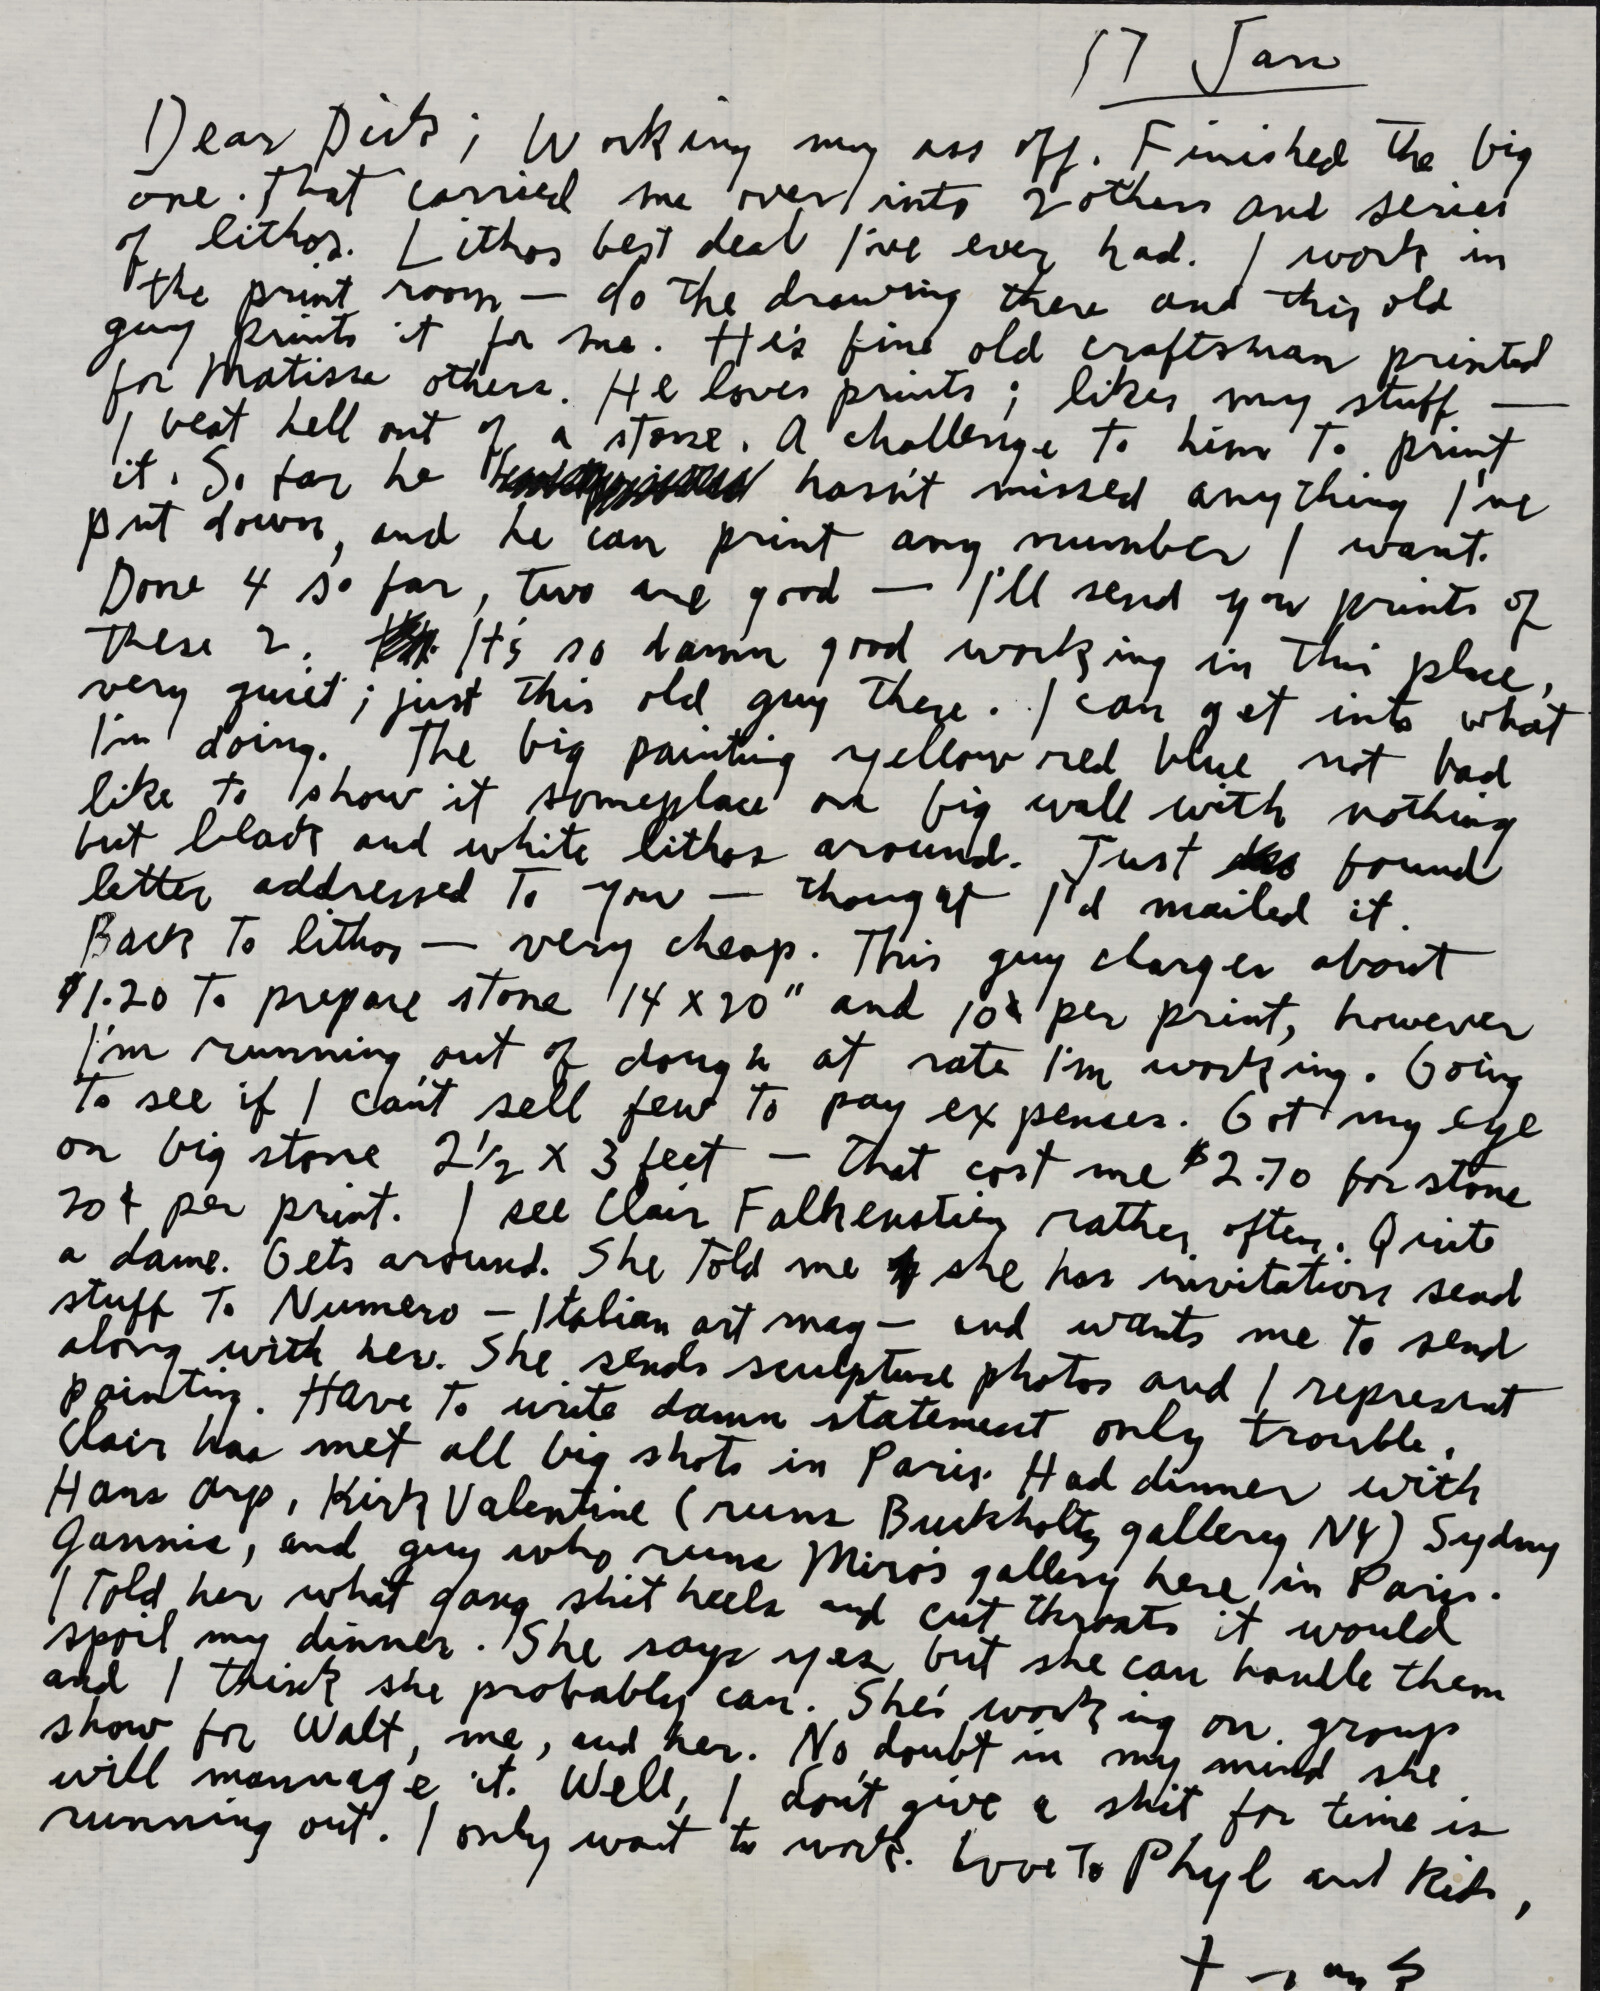 17 Jan
Dear Dick; Working my ass off. Finished the big
one. That carried me over into 2 others and series
of lithos. Lithos best deal I've ever had. I work in
the print room — do the drawing there and this old
guy prints it for me. He's fine old craftsman printed
for Matisse others. He loves prints; likes my stuff —
I beat hell out of a stone. A challenge to him to print
it. So far he hasn't missed anything I've
put down, and he can print any number I want.
Done 4 so far, two are good — I'll send you prints of
these 2. It's so damn good working in this place,
very quiet; just this old guy there. I can get into what
I'm doing. The big painting yellow red blue not bad
like to show it someplace on big wall with nothing
but black and white lithos around. Just found
letter addressed to you — thought I'd mailed it.
Back to lithos — very cheap. This guy charges about
$1.20 to prepare stone 14 x 20" and 10¢ per print, however
I'm running out of dough at rate I'm working. Going
to see if I can't sell few to pay expenses. Got my eye
on big stone 2 1/2 x 3 feet — that cost me $2.70 for stone
20¢ per print. I see Clair Falkenstien rather often. Quite
a dame. Gets around. She told me she has invitation send
stuff to Numero — Italian art mag — and wants me to send
along with her. She sends sculpture photos and I represent
painting. Have to write damn statement only trouble.
Clair has met all big shots in Paris. Had dinner with
Hans Arp, Kirk Valentine (runs Buckholtz gallery NY) Sydney
Jannis, and guy who runs Miro's gallery here in Paris.
I told her what gang shit heels and cut throats it would
spoil my dinner. She says yes but she can handle them
and I think she probably can. She's working on group
show for Walt, me, and her. No doubt in my mind she
will mannage it. Well, I don't give a shit for time is
running out. I only want to work. Love to Phyl and Kids,
Frank